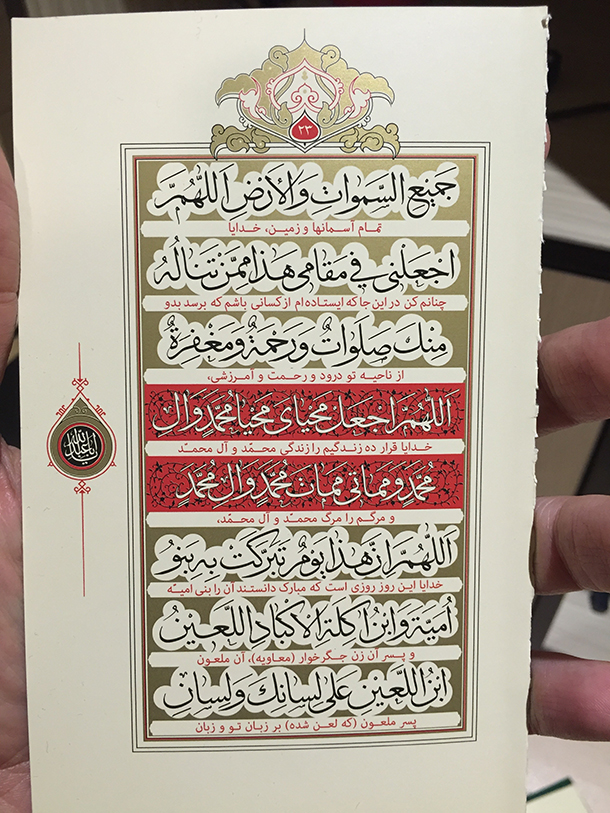 ٢٣
جَمِيعِ السَّمٰوَاتِ وَالْأَرْضِ اَللّٰهُمَّ
تمام آسمانها و زمین، خدایا
اجْعَلْنِي فِي مَقَامِي هٰذَا مِمَّنْ تَنَالُهُ
چنانم کن در این جا که ایستاده ام از کسانی باشم که برسد بدو
مِنْكَ صَلَوَاتٌ وَرَحْمَةٌ وَمَغْفِرَةٌ
از ناحیه تو درود و رحمت و آمرزشی،
اَللّٰهُمَّ اجْعَلْ مَحْيَايَ مَحْيَا مُحَمَّدٍ وَآلِ
خدایا قرار ده زندگیم را زندگی محمّد و آل محمّد
مُحَمَّدٍ وَمَمَاتِي مَمَاتَ مُحَمَّدٍ وَآلِ مُحَمَّدٍ
و مرگم را مرگ محمّد و آل محمّد،
اَللّٰهُمَّ إِنَّ هٰذَا يَوْمٌ تَبَرَّكَتْ بِهِ بَنُو
خدایا این روز روزی است که مبارک دانستند آن را بنی امیّه
أُمَيَّةَ وَابْنُ آكِلَةِ الْأَكْبَادِ اللَّعِينُ
و پسر آن زن جگرخوار (معاویه)، آن ملعون
ابْنُ اللَّعِينِ عَلَى لِسَانِكَ وَلِسَانِ
پسر ملعون (که لعن شده) بر زبان تو و زبان